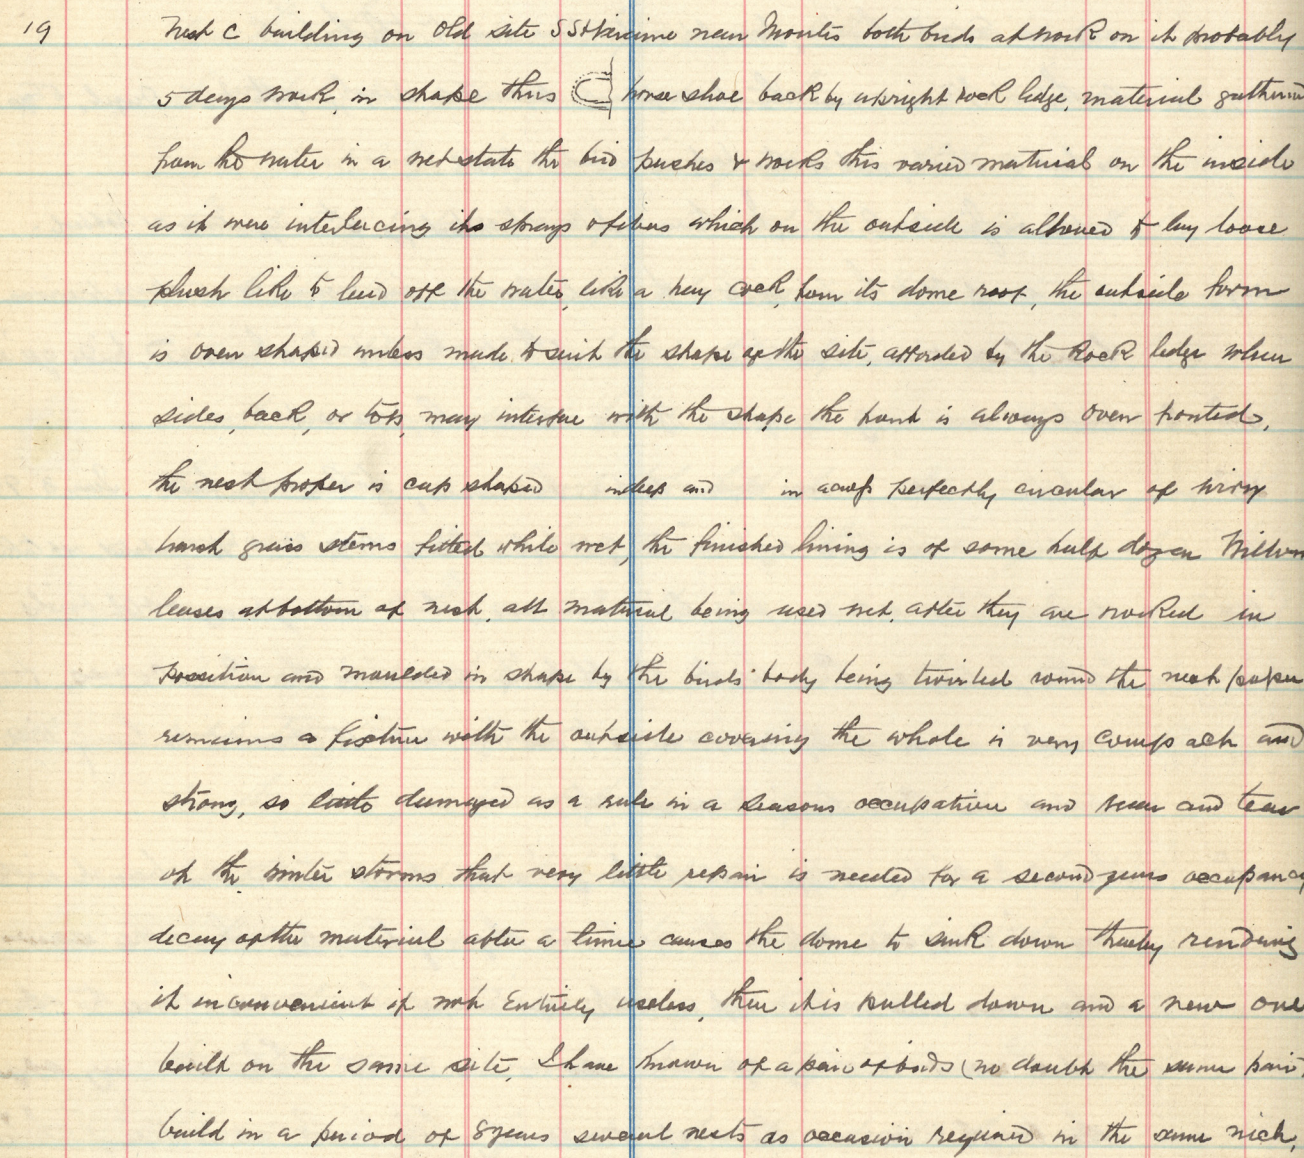 19 Nest C building on old site SS Hericine near Montis both birds at work on it probably
5 days work, in shape thus horse shoe back by upright rock ledge, material gathered
from the water in a wet state the bird pushes & works this varied material on the inside
as it were interlacing its sprays of fibres which on the outside is allowed to lay loose
plush like to lead off the water, like a hay cock, from its dome roof, the outside form
is oven shaped unless made to suit the shape of the site, afforded by the Rock ledge when
sides, back, or top, may interfere with the shape the front is always oven fronted,
the nest proper is cup shaped in deep and in across perfectly circular of wiry
harsh grass stems fitted while wet, the finished lining is of some half dozen Willow
leaves at bottom of nest, all material being used wet, after they are worked in
position and moulded in shape by the birds' body being twirled round the nest proper
remains a fixture with the outside covering the whole is very compact and
strong, so little damaged as a rule in a seasons occupation and wear and tear
of the winter storms that very little repair is needed for a second years occupancy
decay of the material after a time causes the dome to sink down thereby rendering
it inconvenient if not Entirely useless, then it is pulled down and a new one
built on the same site, I have known of a pair of birds (no doubt the same pair)
build in a period of 8 years several nests as occasion required in the same nich,